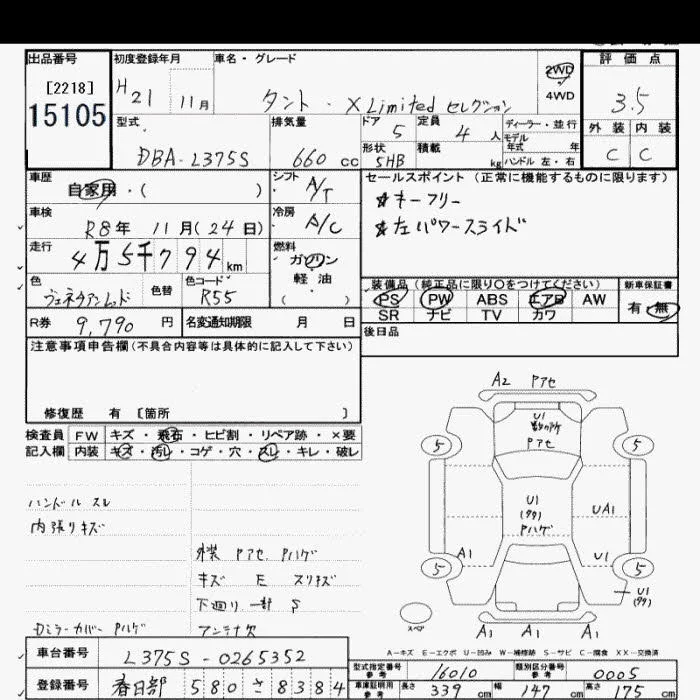 出品番号
[2218]
15105
初度登録年月
H21 11月
車名・グレード
タント・X Limited セレクション
2WD
4WD
評価点
3.5
外装 内装
C C
型式
DBA-L375S
排気量
660 cc
ドア 5
定員 4 人
形状 5HB
積載 kg
ディーラー・並行
モデル年式 年
ハンドル 左・右
車歴
自家用・( )
シフト A/T
車検
R8年 11月(24日)
冷房 A/C
走行
4万5千794km
燃料
ガソリン
軽油
( )
色
ヴェネチアンレッド
色替
色コード
R55
R券 9,790 円
名変通知期限 月 日
セールスポイント (正常に機能するものに限ります)
☆キーフリー
☆左パワースライド
装備品(純正品に限り○をつけてください)
PS PW ABS エアB AW
SR ナビ TV カワ
新車保証書
有・無
後日品
注意事項申告欄(不具合内容等は具体的に記入して下さい)
修復歴 有 〔箇所 〕
検査員 FW キズ・飛石・ヒビ割・リペア跡・×要
記入欄 内装 キズ・汚レ・コゲ・穴・スレ・キレ・破レ
ハンドルスレ
内張りキズ
外装 Pアセ Pハゲ
キズ E スリキズ
下廻り一部 S
Dミラーカバー Pハゲ
アンテナ欠
A2 Pアセ
U1
Pアセ
5
5
U1
(タタ)
Pハゲ
UA1
A1
U1
5
5
U1
(タタ)
スペア
A1 A1 A1
A-キズ E-エクボ U-凹み W-補修跡 S-サビ C-腐食 XX-交換済
車台番号
L375S-0265352
登録番号
春日部 580 さ 8384
型式指定番号 参考 16010
類別区分番号 参考 0005
車庫証明用 参考 長さ 339 cm 幅 147 cm 高さ 175 cm